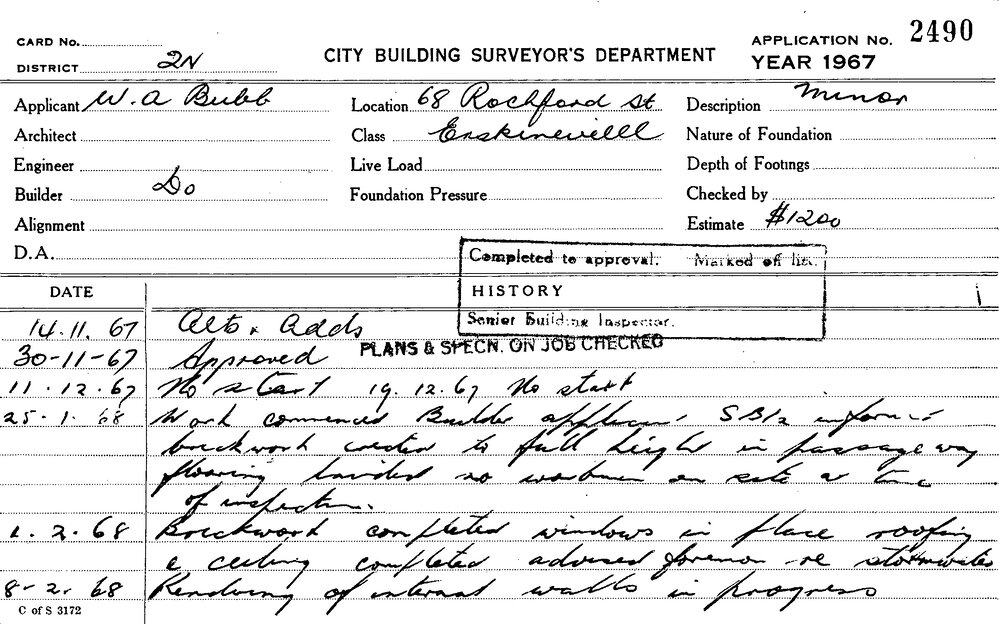 CARD No.
DISTRICT 2N
CITY BUILDING SURVEYOR'S DEPARTMENT
APPLICATION No. 2490
YEAR 1967
Applicant W. A Bubb
Location 68 Rochford St
Description Minor
Architect
Class Erskinevilll
Nature of Foundation
Engineer
Live Load
Depth of Footings
Builder Do
Foundation Pressure
Checked by
Alignment
Estimate $1200
D.A.
Completed to approval. Marked off list.
HISTORY
Senior Building Inspector.
DATE
14.11.67 Alts & Adds
PLANS & SPECN. ON JOB CHECKED
30-11-67 Approved
11.12.67 No start 19.12.67 No start
25.1.68 Work commenced Builder SB/2
brickwork erected to full height in passage way
flooring no workmen on site at time
of inspection.
1.2.68 Brickwork completed windows in place roofing
& ceiling completed advised foreman re stormwater
8-2.68 Rendering of internal walls in progress
C of S 3172